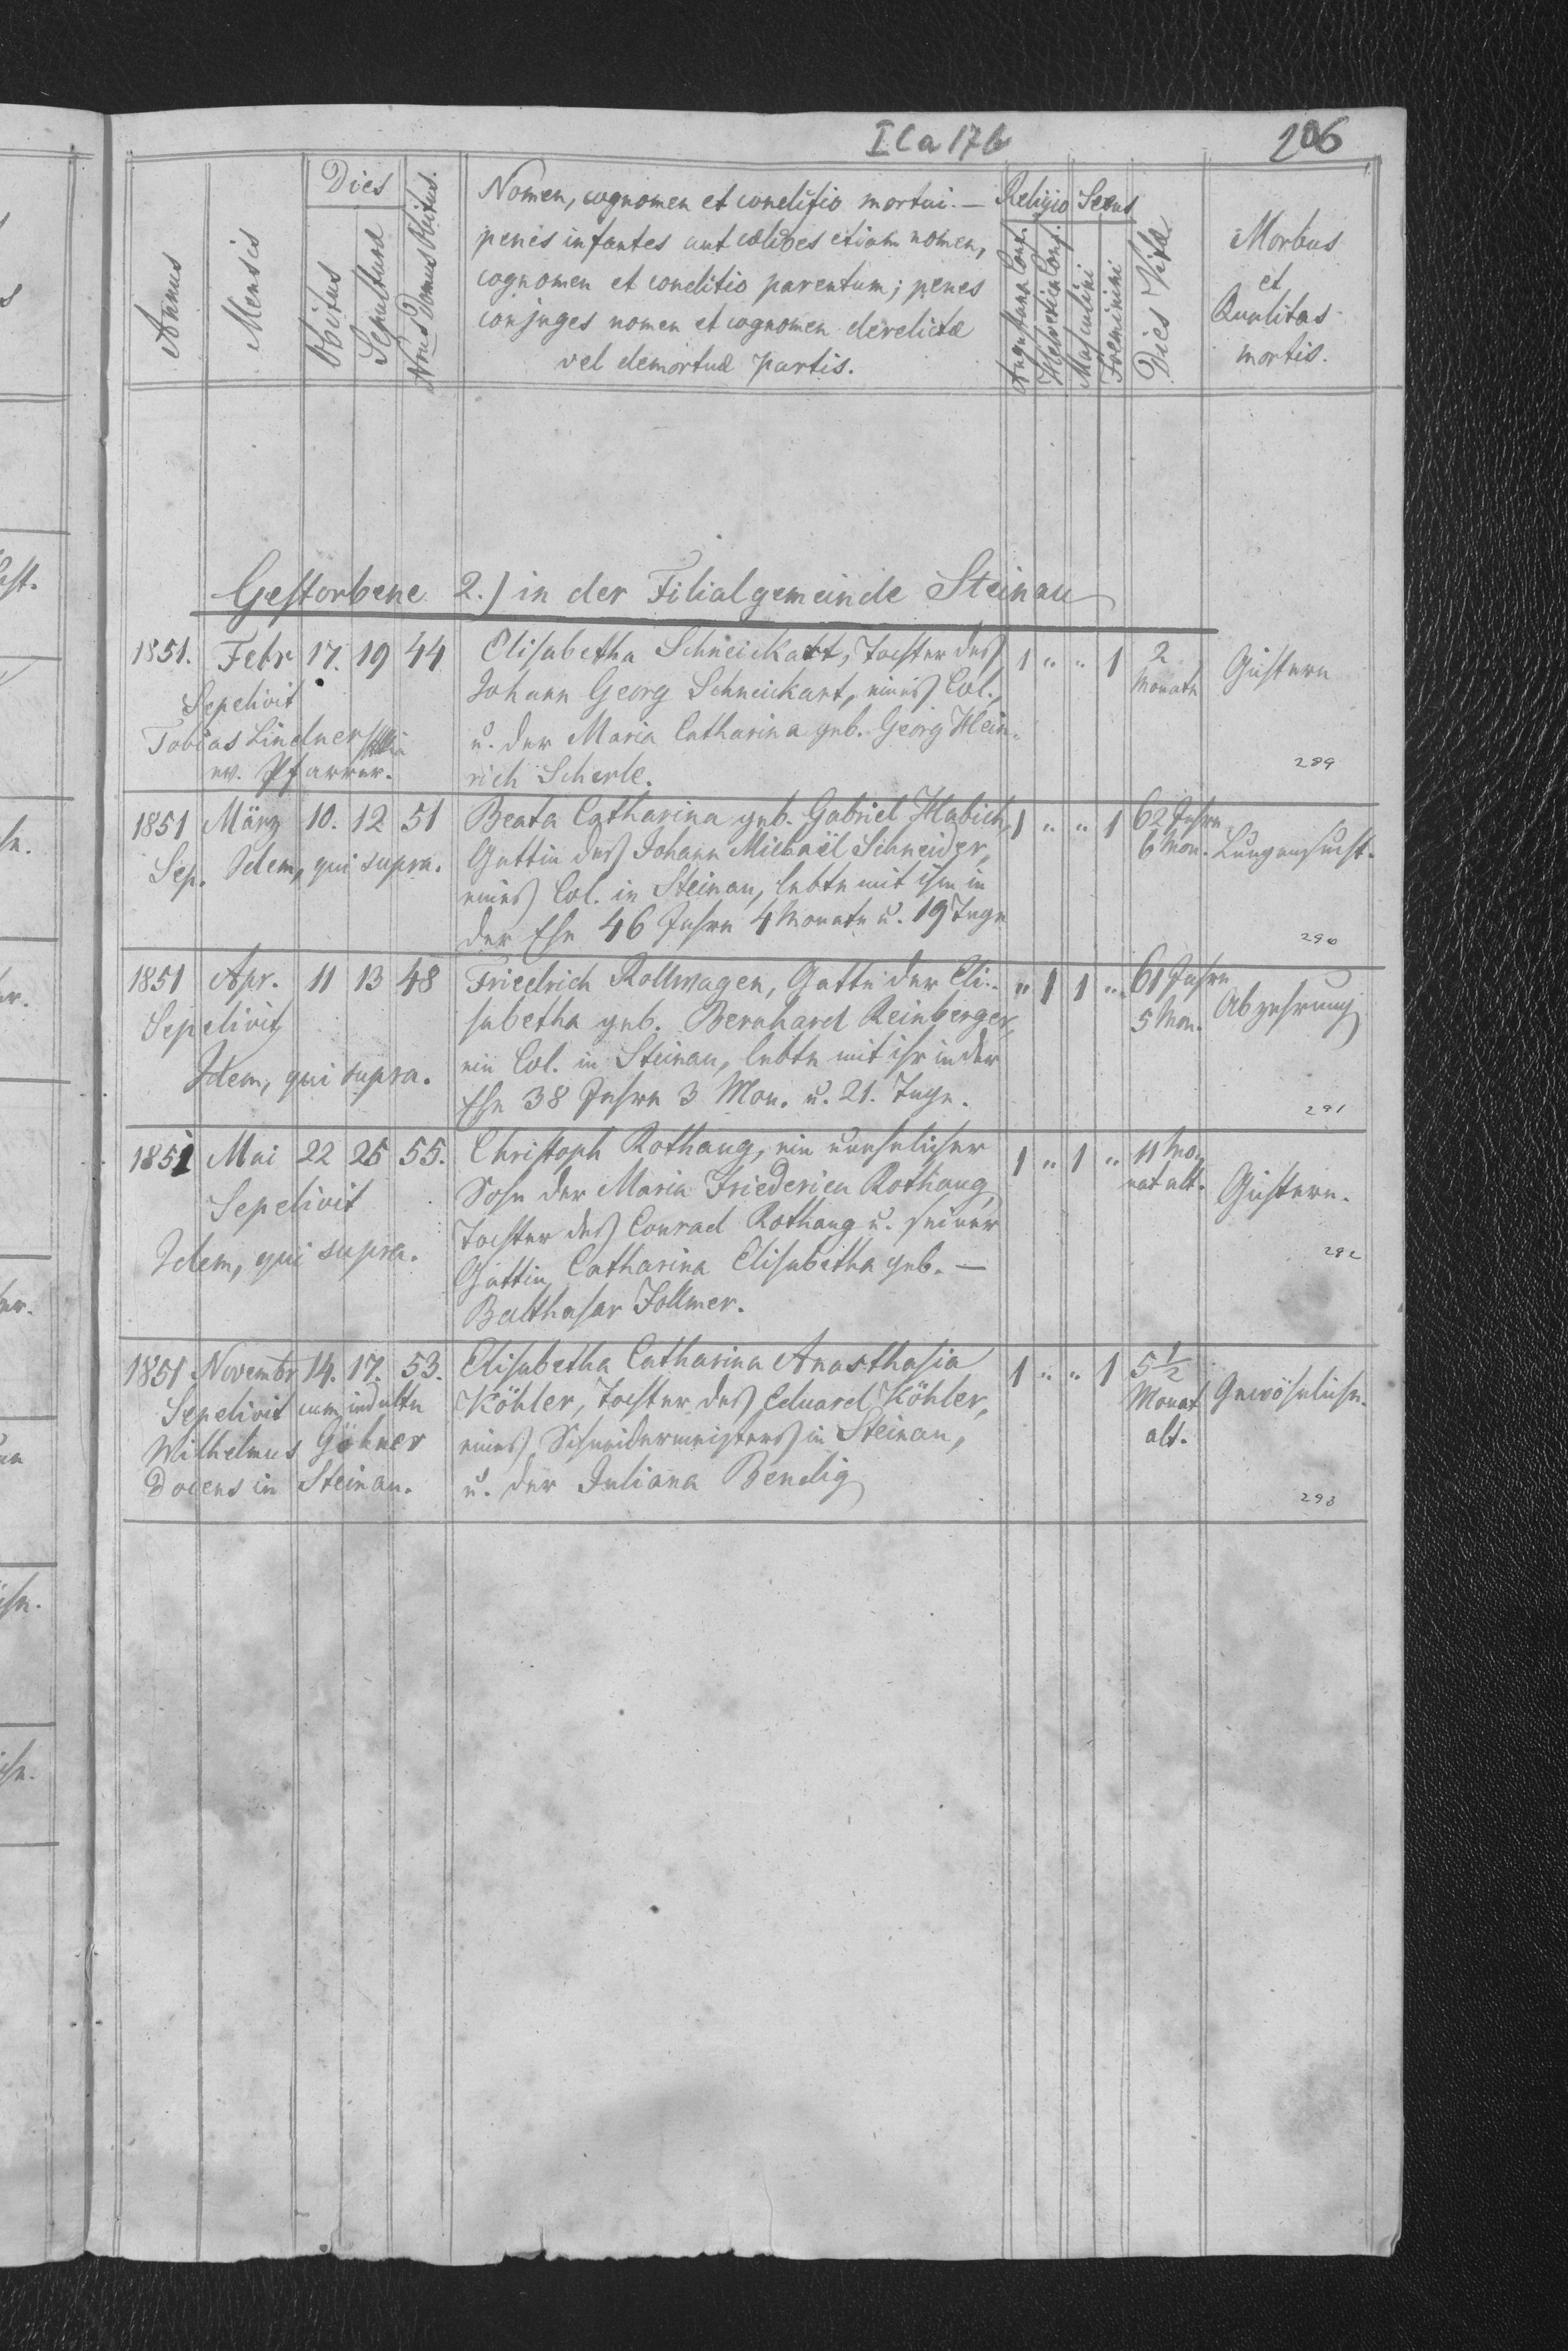 I C a 17 b
206
Annus
Mensis
Dies
Obitus
Sepulturæ
Nrus Domus Obitus.
Nomen, cognomen et conditio mortui. —
penes infantes aut cælibes etiam nomen,
cognomen et conditio parentum; penes
conjuges nomen et cognomen derelictæ
vel demortuæ partis.
Religio
Augustana Conf.
Helvetica Conf.
Sexus
Masculini
Foeminini
Dies Vitæ
Morbus
et
Qualitas
mortis.
Gestorbene 2.) in der Filialgemeinde Steinau
1851. Febr 17. 19 44 Elisabetha Schneickart, Tochter des 1 " " 1 2 Gichtern
Sepelivit Johann Georg Schneickart, eines Col., Monate
Tobias Lindner u. der Maria Catharina geb. Georg Hein-
ev. Pfarrer. rich Scherle. 289
1851 März 10. 12 51 Beata Catharina geb. Gabriel Habich, 1 " " 1 62 Jahre
Sep. Idem, qui supra. Gattin des Johann Michaël Schneider, 6 Mon. Lungensucht.
eines Col. in Steinau, lebte mit ihm in
der Ehe 46 Jahre 4 Monate u. 19 Tage 290
1851 Apr. 11 13 48 Friedrich Rollwagen, Gatte der Eli- " 1 1 " 61 Jahre Abzehrung
Sepelivit sabetha geb. Bernhard Reinberger, 5 Mon.
ein Col. in Steinau, lebte mit ihr in der
Idem, qui supra. Ehe 38 Jahre 3 Mon. u. 21. Tage. 291
1851 Mai 22 25 55. Christoph Rothaug, ein unehelicher 1 " 1 " 11 Mo-
Sepelivit Sohn der Maria Friederica Rothaug, nat alt. Gichtern.
Tochter des Conrad Rothaug u. seiner
Idem, qui supra. Gattin Catharina Elisabetha geb. — 292
Balthasar Follmer.
1851 Novembr 14. 17. 53. Elisabetha Catharina Anasthasia 1 " " 1 5 1/2
Sepelivit cum indultu Köhler, Tochter des Eduard Köhler, Monat Gewöhnliche.
Wilhelmus Göhner eines Schneidermeisters in Steinau, alt.
Docens in Steinau. u. der Juliana Bendig 293